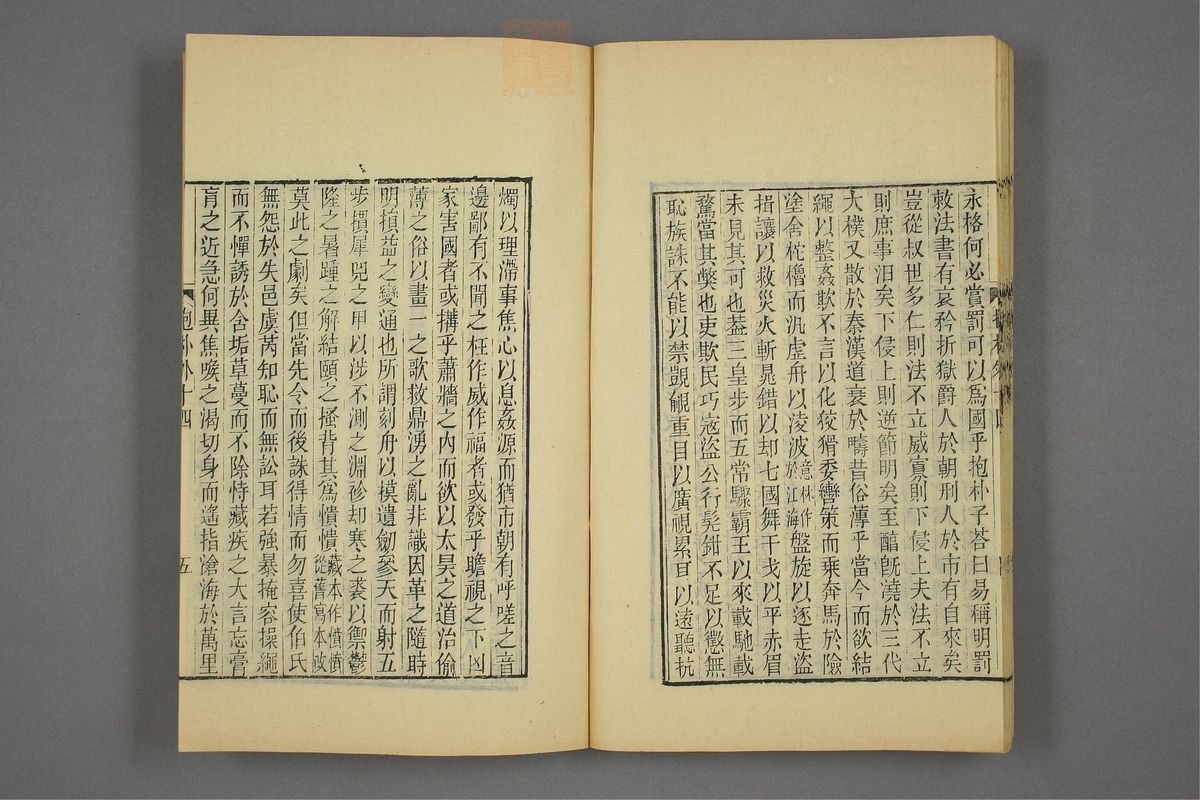 永格何必賞罰可以爲國乎抱朴子荅曰易稱明罰
敕法書有哀矜折獄爵人於朝刑人於市有自來矣
豈從叔世多仁則法不立威寡則下侵上夫法不立
則庶事汨矣下侵上則逆節明矣至醇旣澆於三代
大樸又散於秦漢道衰於疇昔俗薄乎當今而欲結
繩以整姦欺不言以化狡猾委轡策而乘奔馬於險
塗舍柁櫓而汎虛舟以凌波意林作於江海盤旋以逐走盜
揖讓以救災火斬晁錯以却七國舞干戈以平赤眉
未見其可也葢三皇步而五常驟霸王以來載馳載
騖當其弊也吏欺民巧寇盜公行髡鉗不足以懲無
恥族誅不能以禁覬覦重目以廣視累耳以遠聽抗
燭以理滯事焦心以息姦源而猶市朝有呼嗟之音
邊鄙有不聞之枉作威作福者或發乎瞻視之下凶
家害國者或搆乎蕭牆之內而欲以太昊之道治偷
薄之俗以畫一之歌救鼎湧之亂非識因革之隨時
明損益之變通也所謂刻舟以摸遺劒參天而射五
步擐犀兕之甲以涉不測之淵袗却寒之裘以禦鬱
隆之暑踵之解結頤之搔背其爲憒憒藏本作憤憤從舊寫本改
莫此之劇矣但當先令而後誅得情而勿喜使伯氏
無怨於失邑虞芮知恥而無訟耳若強暴掩容操繩
而不憚誘於含垢草蔓而不除恃藏疾之大言忘膏
肓之近急何異焦喉之渴切身而遙指滄海於萬里
抱朴外十四
五